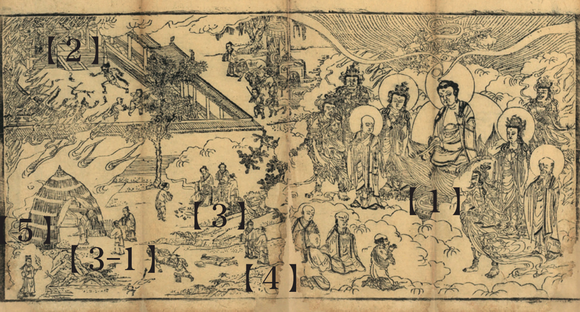 【2】
【1】
【3】
【5】
【3-1】
【4】